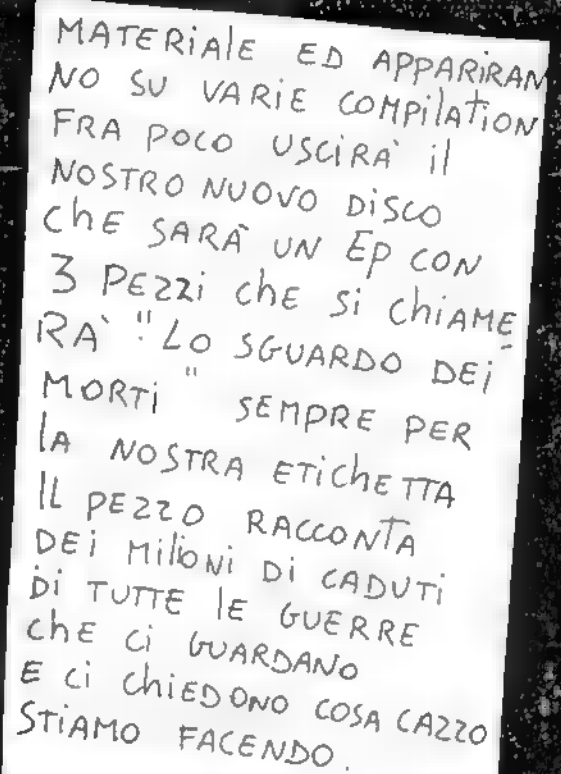 MATERIALE ED APPARIRAN
NO SU VARIE COMPILATION
FRA POCO USCIRA' il
NOSTRO NUOVO DISCO
CHE SARÀ UN EP CON
3 PEZZI CHE SI CHIAME
RA' "LO SGUARDO DEI
MORTI" SEMPRE PER
LA NOSTRA ETICHETTA
IL PEZZO RACCONTA
DEI MILIONI DI CADUTI
DI TUTTE LE GUERRE
CHE CI GUARDANO
E CI CHIEDONO COSA CAZZO
STIAMO FACENDO.